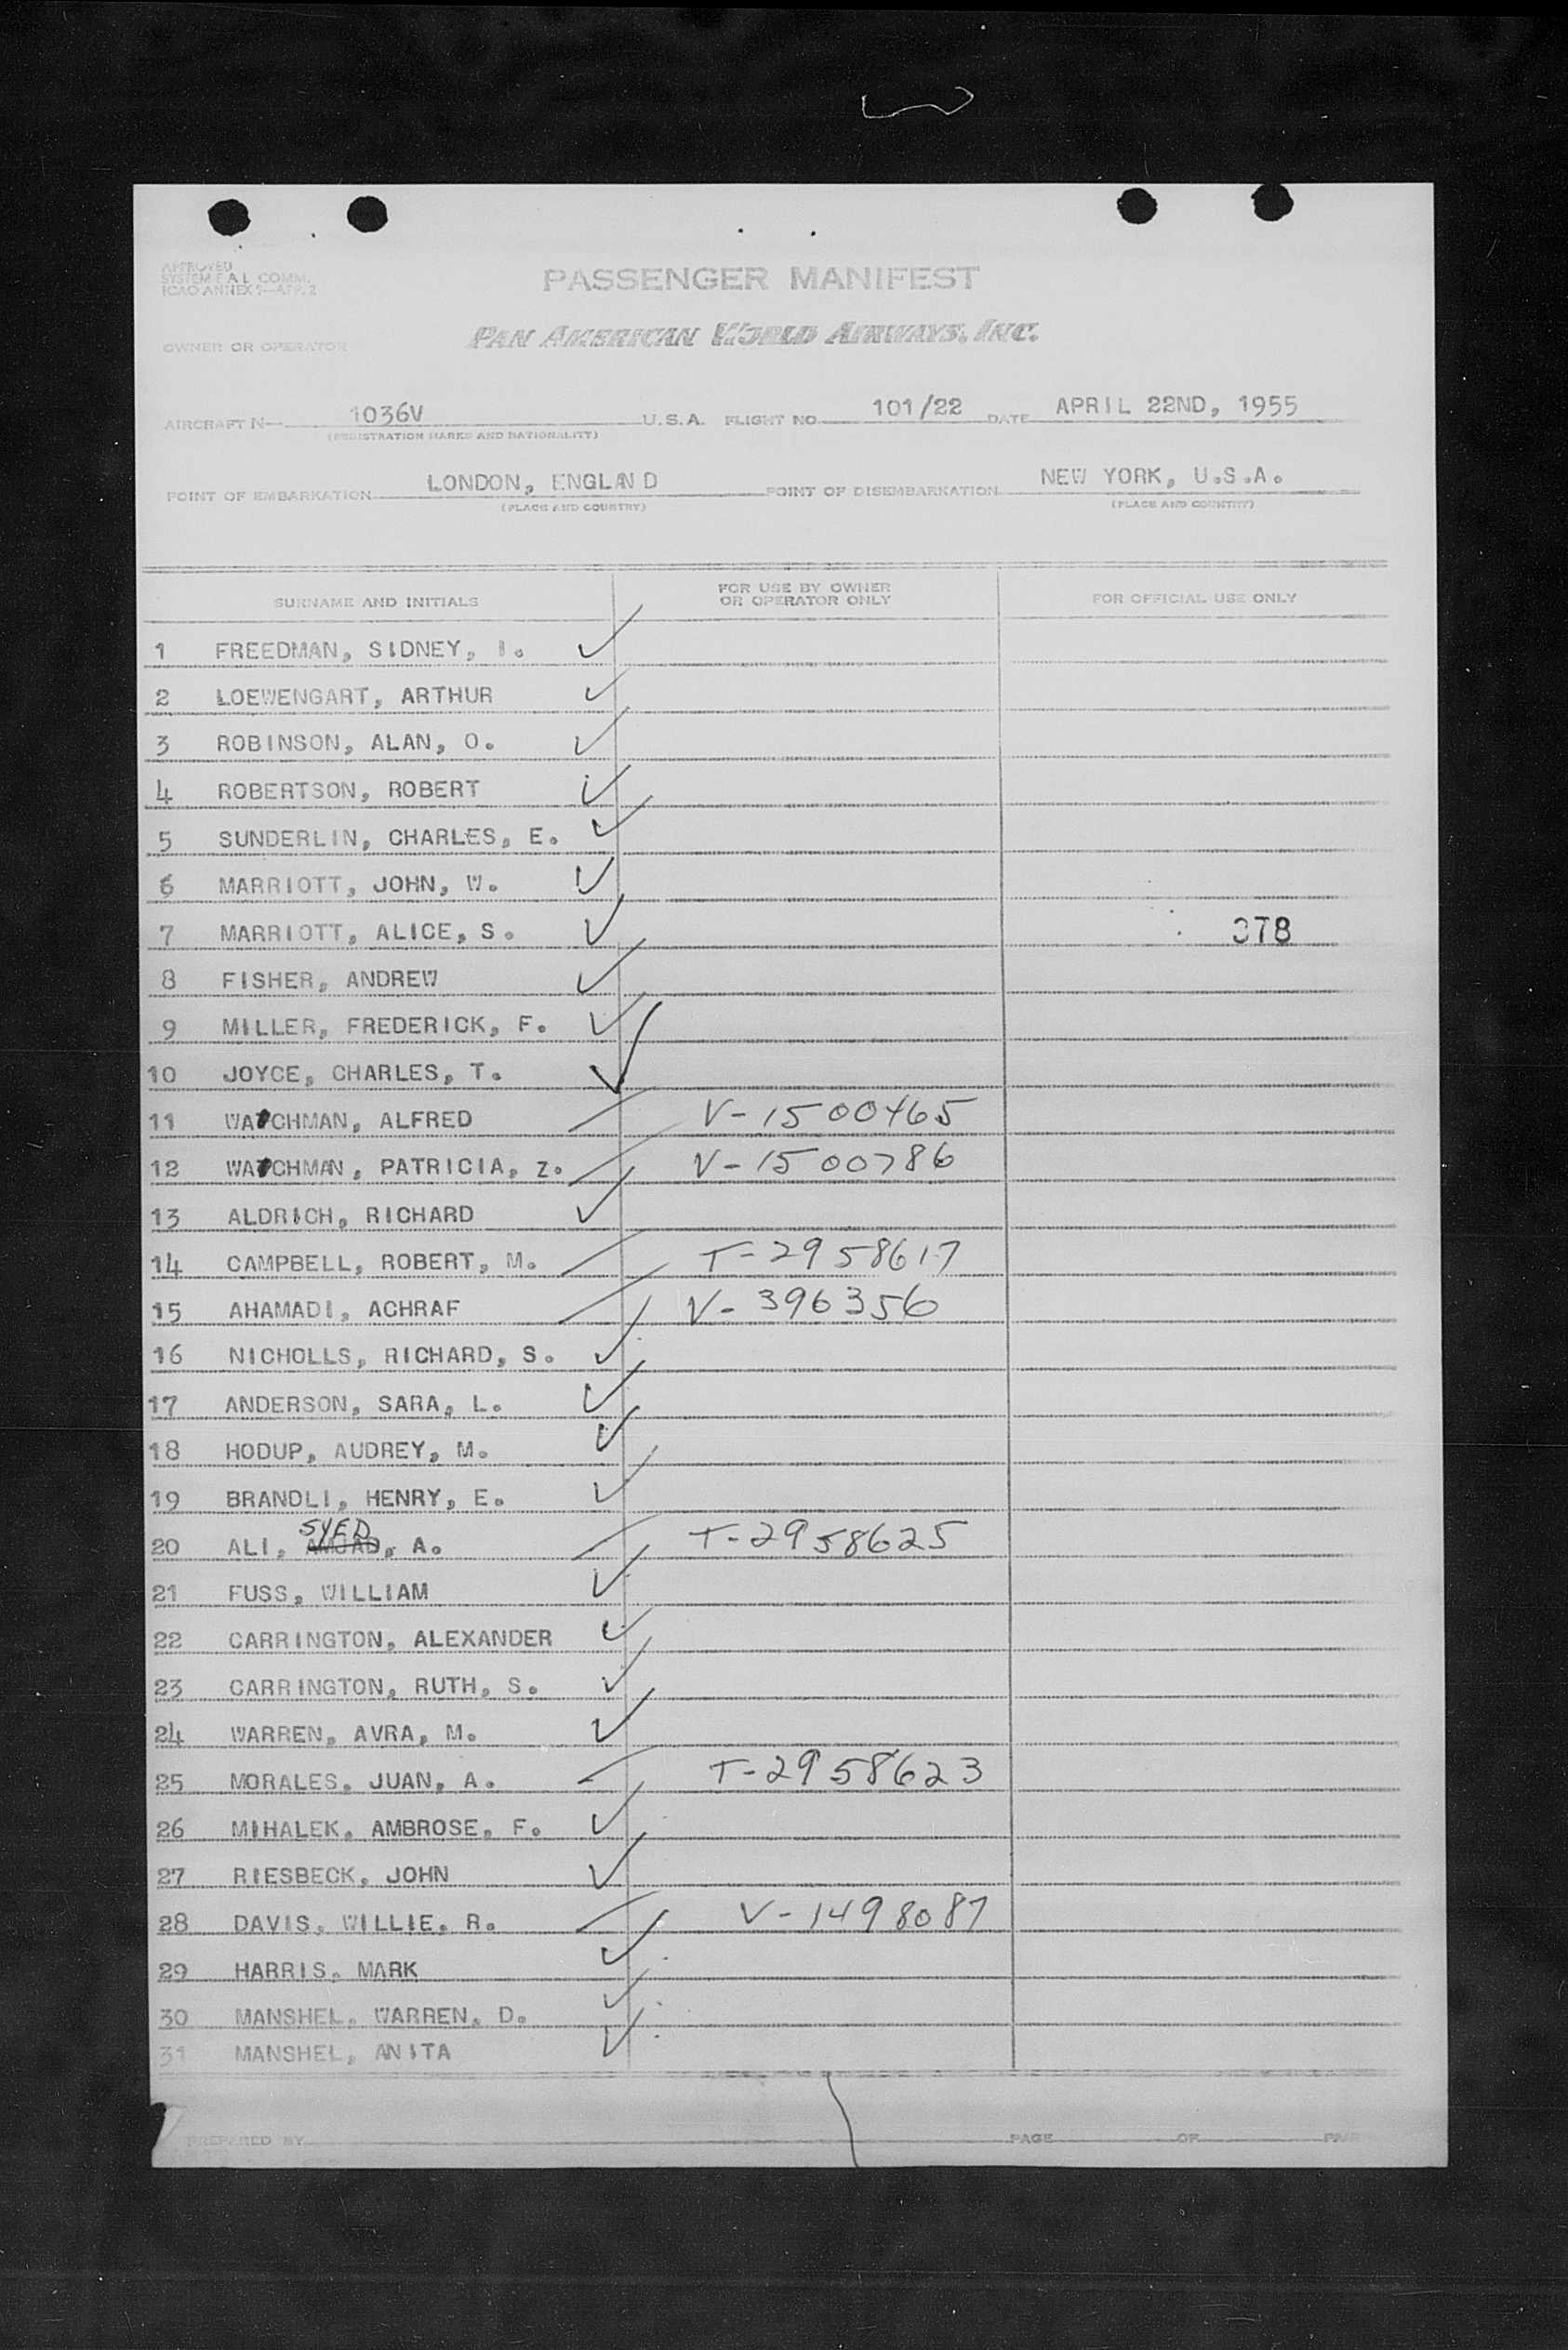 APPROVED
SYSTEM F A L COMM.
ICAO ANNEX 9—APP. 2
PASSENGER MANIFEST
OWNER OR OPERATOR PAN AMERICAN WORLD AIRWAYS, INC.
AIRCRAFT N— 1036V U.S.A. FLIGHT NO. 101/22 DATE APRIL 22ND, 1955
(REGISTRATION MARKS AND NATIONALITY)
POINT OF EMBARKATION LONDON, ENGLAND POINT OF DISEMBARKATION NEW YORK, U.S.A.
(PLACE AND COUNTRY) (PLACE AND COUNTRY)
SURNAME AND INITIALS FOR USE BY OWNER OR OPERATOR ONLY FOR OFFICIAL USE ONLY
1 FREEDMAN, SIDNEY, I. ✓
2 LOEWENGART, ARTHUR ✓
3 ROBINSON, ALAN, O. ✓
4 ROBERTSON, ROBERT ✓
5 SUNDERLIN, CHARLES, E. ✓
6 MARRIOTT, JOHN, W. ✓
7 MARRIOTT, ALICE, S. ✓ 378
8 FISHER, ANDREW ✓
9 MILLER, FREDERICK, F. ✓
10 JOYCE, CHARLES, T. ✓
11 WATCHMAN, ALFRED V-1500465
12 WATCHMAN, PATRICIA, Z. V-1500786
13 ALDRICH, RICHARD ✓
14 CAMPBELL, ROBERT, M. T-2958617
15 AHAMADI, ACHRAF V-396356
16 NICHOLLS, RICHARD, S. ✓
17 ANDERSON, SARA, L. ✓
18 HODUP, AUDREY, M. ✓
19 BRANDLI, HENRY, E. ✓
20 ALI, SYED AMJAD, A. T-2958625
21 FUSS, WILLIAM ✓
22 CARRINGTON, ALEXANDER ✓
23 CARRINGTON, RUTH, S. ✓
24 WARREN, AVRA, M. ✓
25 MORALES, JUAN, A. T-2958623
26 MIHALEK, AMBROSE, F. ✓
27 RIESBECK, JOHN ✓
28 DAVIS, WILLIE, R. V-1498087
29 HARRIS, MARK ✓
30 MANSHEL, WARREN, D. ✓
31 MANSHEL, ANITA ✓
PREPARED BY PAGE OF